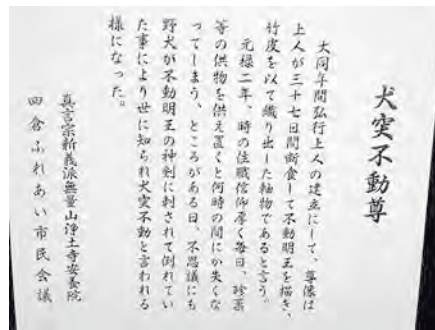 犬突不動尊
大同年間弘行上人の建立にして、尊像は
上人が三十七日間断食して不動明王を描き、
竹皮を以て織り出した軸物であると言う。
元禄二年、時の住職信仰厚く毎日、珍菓
等の供物を供え置くと何時の間にか失くな
ってしまう、ところがある日、不思議にも
野犬が不動明王の神剣に刺されて倒れてい
た事により世に知られ犬突不動と言われる
様になった。
真言宗新義派無量山浄土寺安養院
四倉ふれあい市民会議